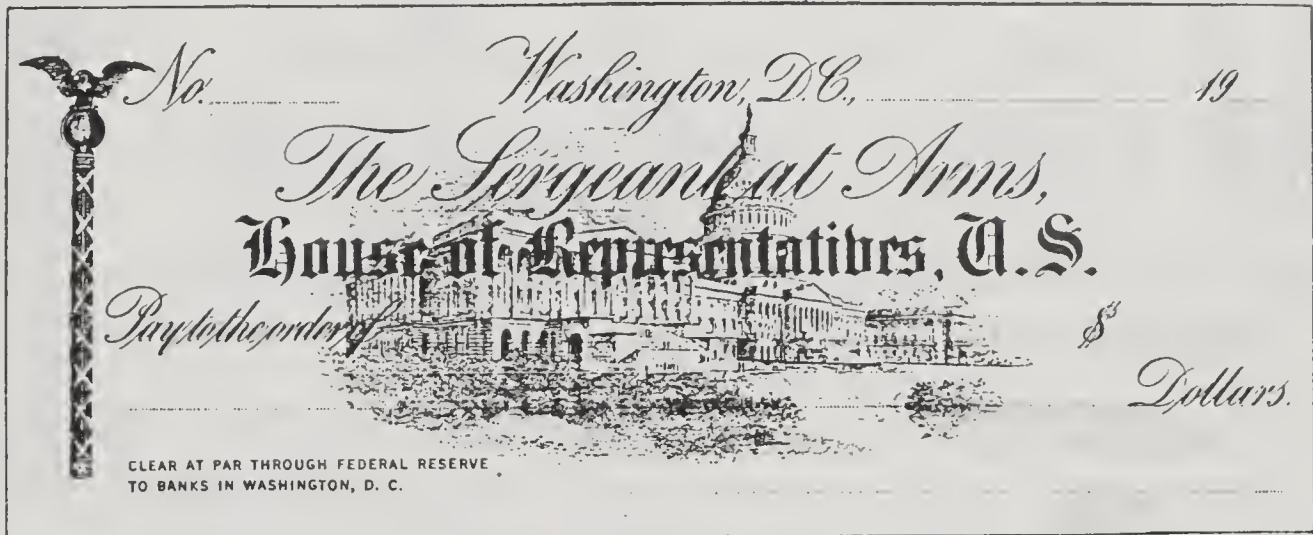 No. Washington, D.C., 19
The Sergeant at Arms,
House of Representatives, U.S.
Pay to the order of $
Dollars.
CLEAR AT PAR THROUGH FEDERAL RESERVE
TO BANKS IN WASHINGTON, D. C.